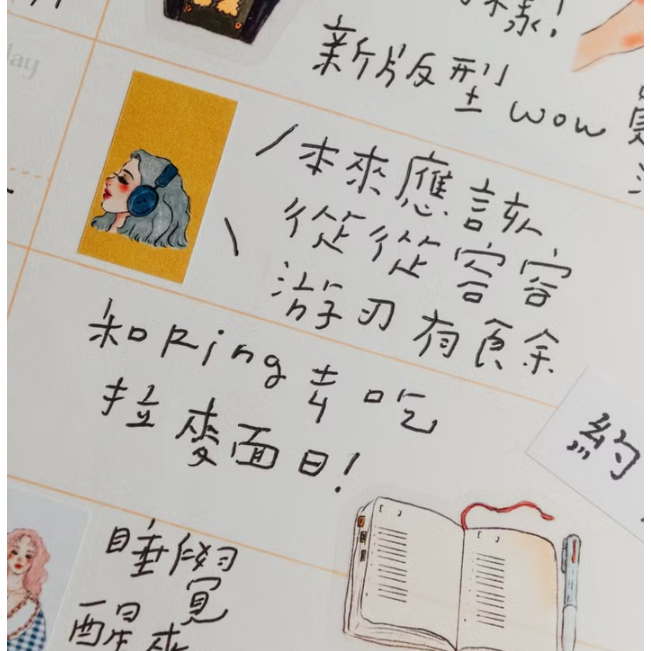 樣!
新版型 wow
本來應該
從從容容
游刃有餘
和Ring去吃
拉麥面日!
約
睡覺
醒來